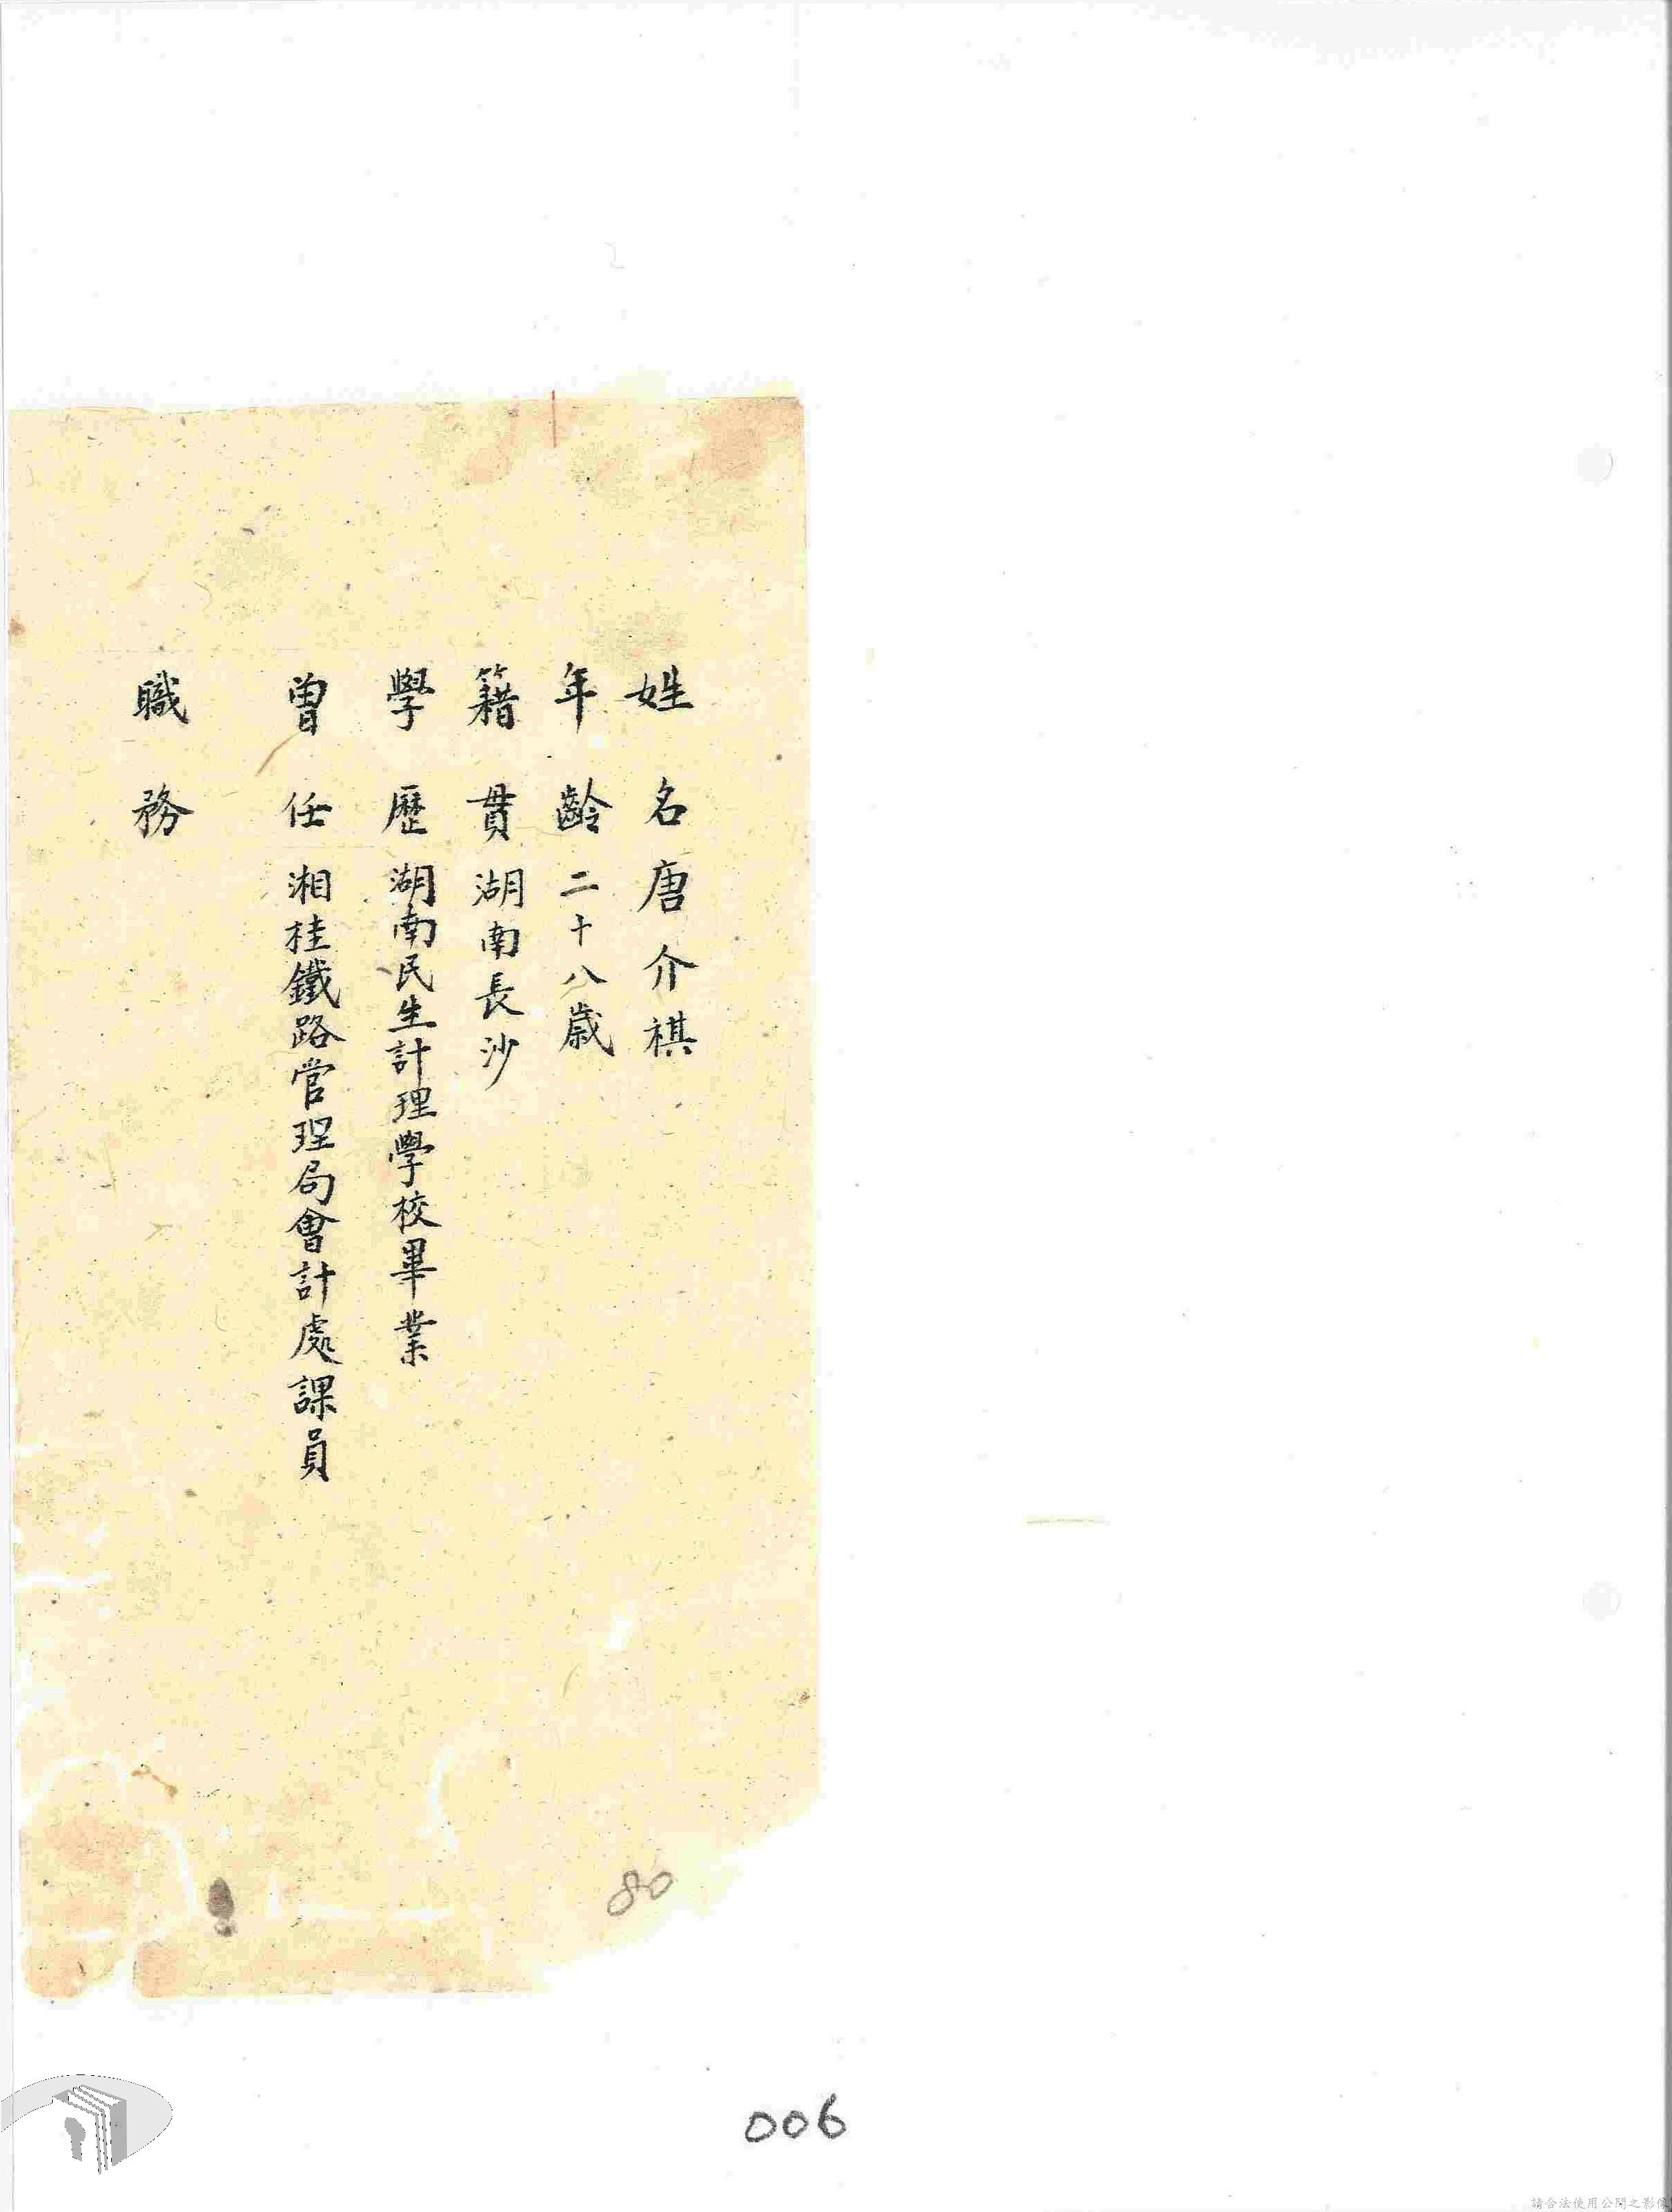 姓名唐介祺
年齡二十八歲
籍貫湖南長沙
學歷湖南民生計理學校畢業
曾任湘桂鐵路管理局會計處課員
職務
80
006
請合法使用公開之影像